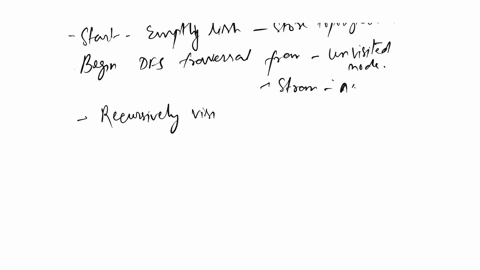 - Start - Empty list - Store
Begin DFS traversal from - unvisited node.
- Recursively vis